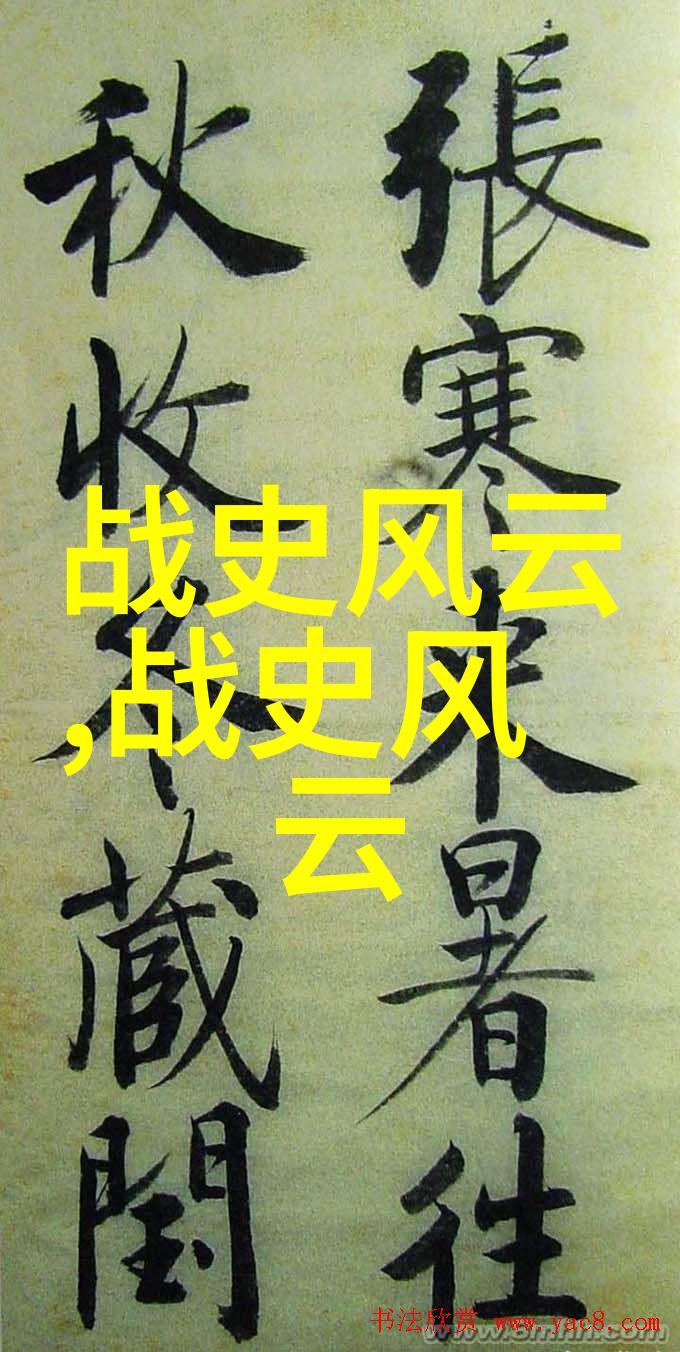 張寒来暑往
秋收冬蔵閏
战史风云
,战史风
云
书法欣赏 www.yac8.com